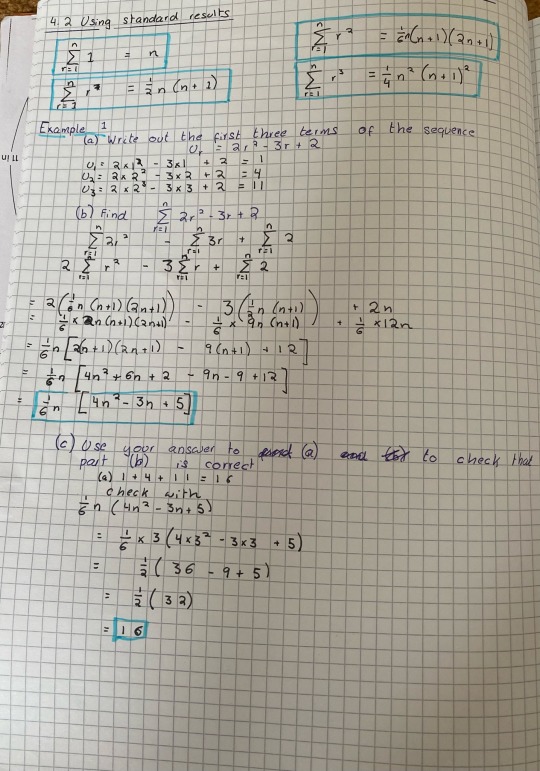 4.2 Using standard results
n
Σ 1 = n
r=1
n
Σ r² = ½ n (n + 1)
r=1
n
Σ r² = ⅙n(n+1)(2n+1)
r=1
n
Σ r³ = ¼ n² (n+1)²
r=1
Example 1
(a) Write out the first three terms of the sequence
Uᵣ = 2r² - 3r + 2
U₁ = 2×1² - 3×1 + 2 = 1
U₂ = 2×2² - 3×2 + 2 = 4
U₃ = 2×2³ - 3×3 + 2 = 11
n
(b) Find Σ 2r² - 3r + 2
r=1
n n n
Σ 2r² - Σ 3r + Σ 2
r=1 r=1 r=1
n n n
2 Σ r² - 3 Σ r + Σ 2
r=1 r=1 r=1
= 2(⅙n (n+1)(2n+1)) - 3(½n (n+1)) + 2n
= ⅙ × 2n(n+1)(2n+1) - ⅙ × 9n (n+1) + ⅙ × 12n
= ⅙n [2(n+1)(2n+1) - 9(n+1) + 12]
= ⅙n [4n² + 6n + 2 - 9n - 9 + 12]
= ⅙n [4n² - 3n + 5]
(c) Use your answer to (a) to check that
part (b) is correct
(a) 1 + 4 + 11 = 16
check with
⅙n (4n² - 3n + 5)
= ⅙ × 3(4×3² - 3×3 + 5)
= ½ ( 36 - 9 + 5)
= ½ ( 32)
= 16